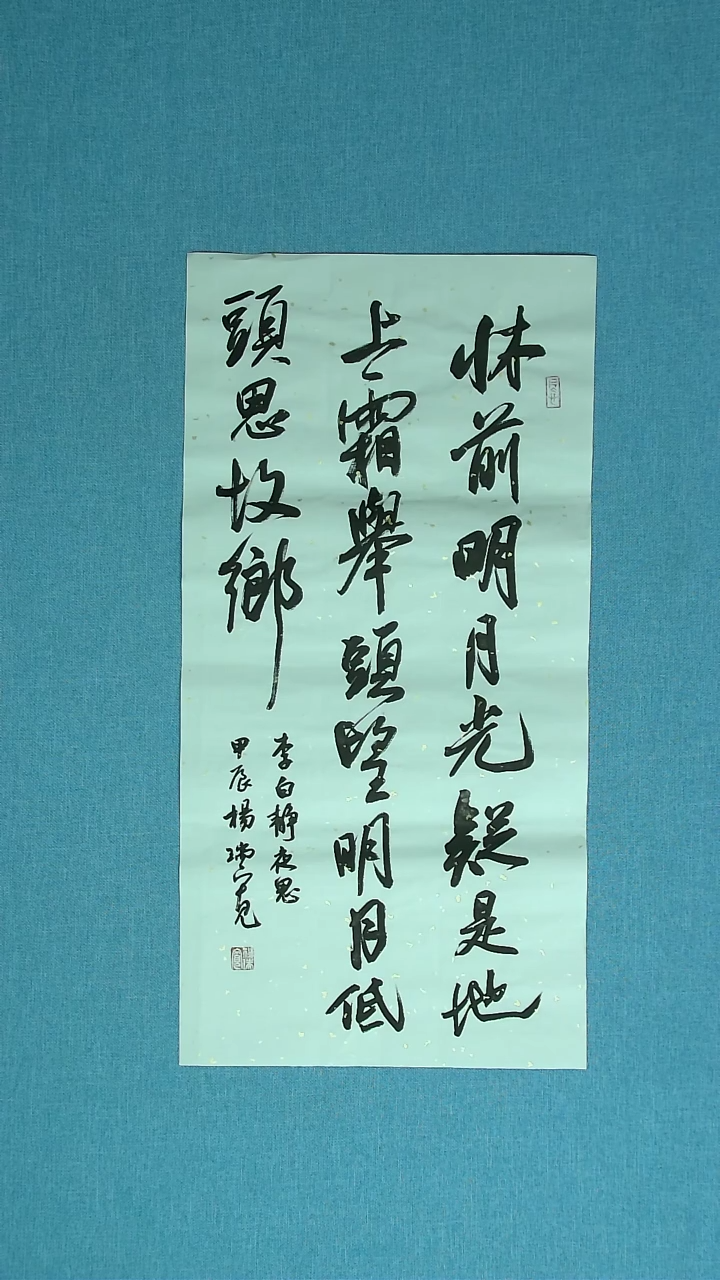 牀前明月光疑是地
上霜舉頭望明月低
頭思故鄉
李白靜夜思
甲辰楊瑞寬